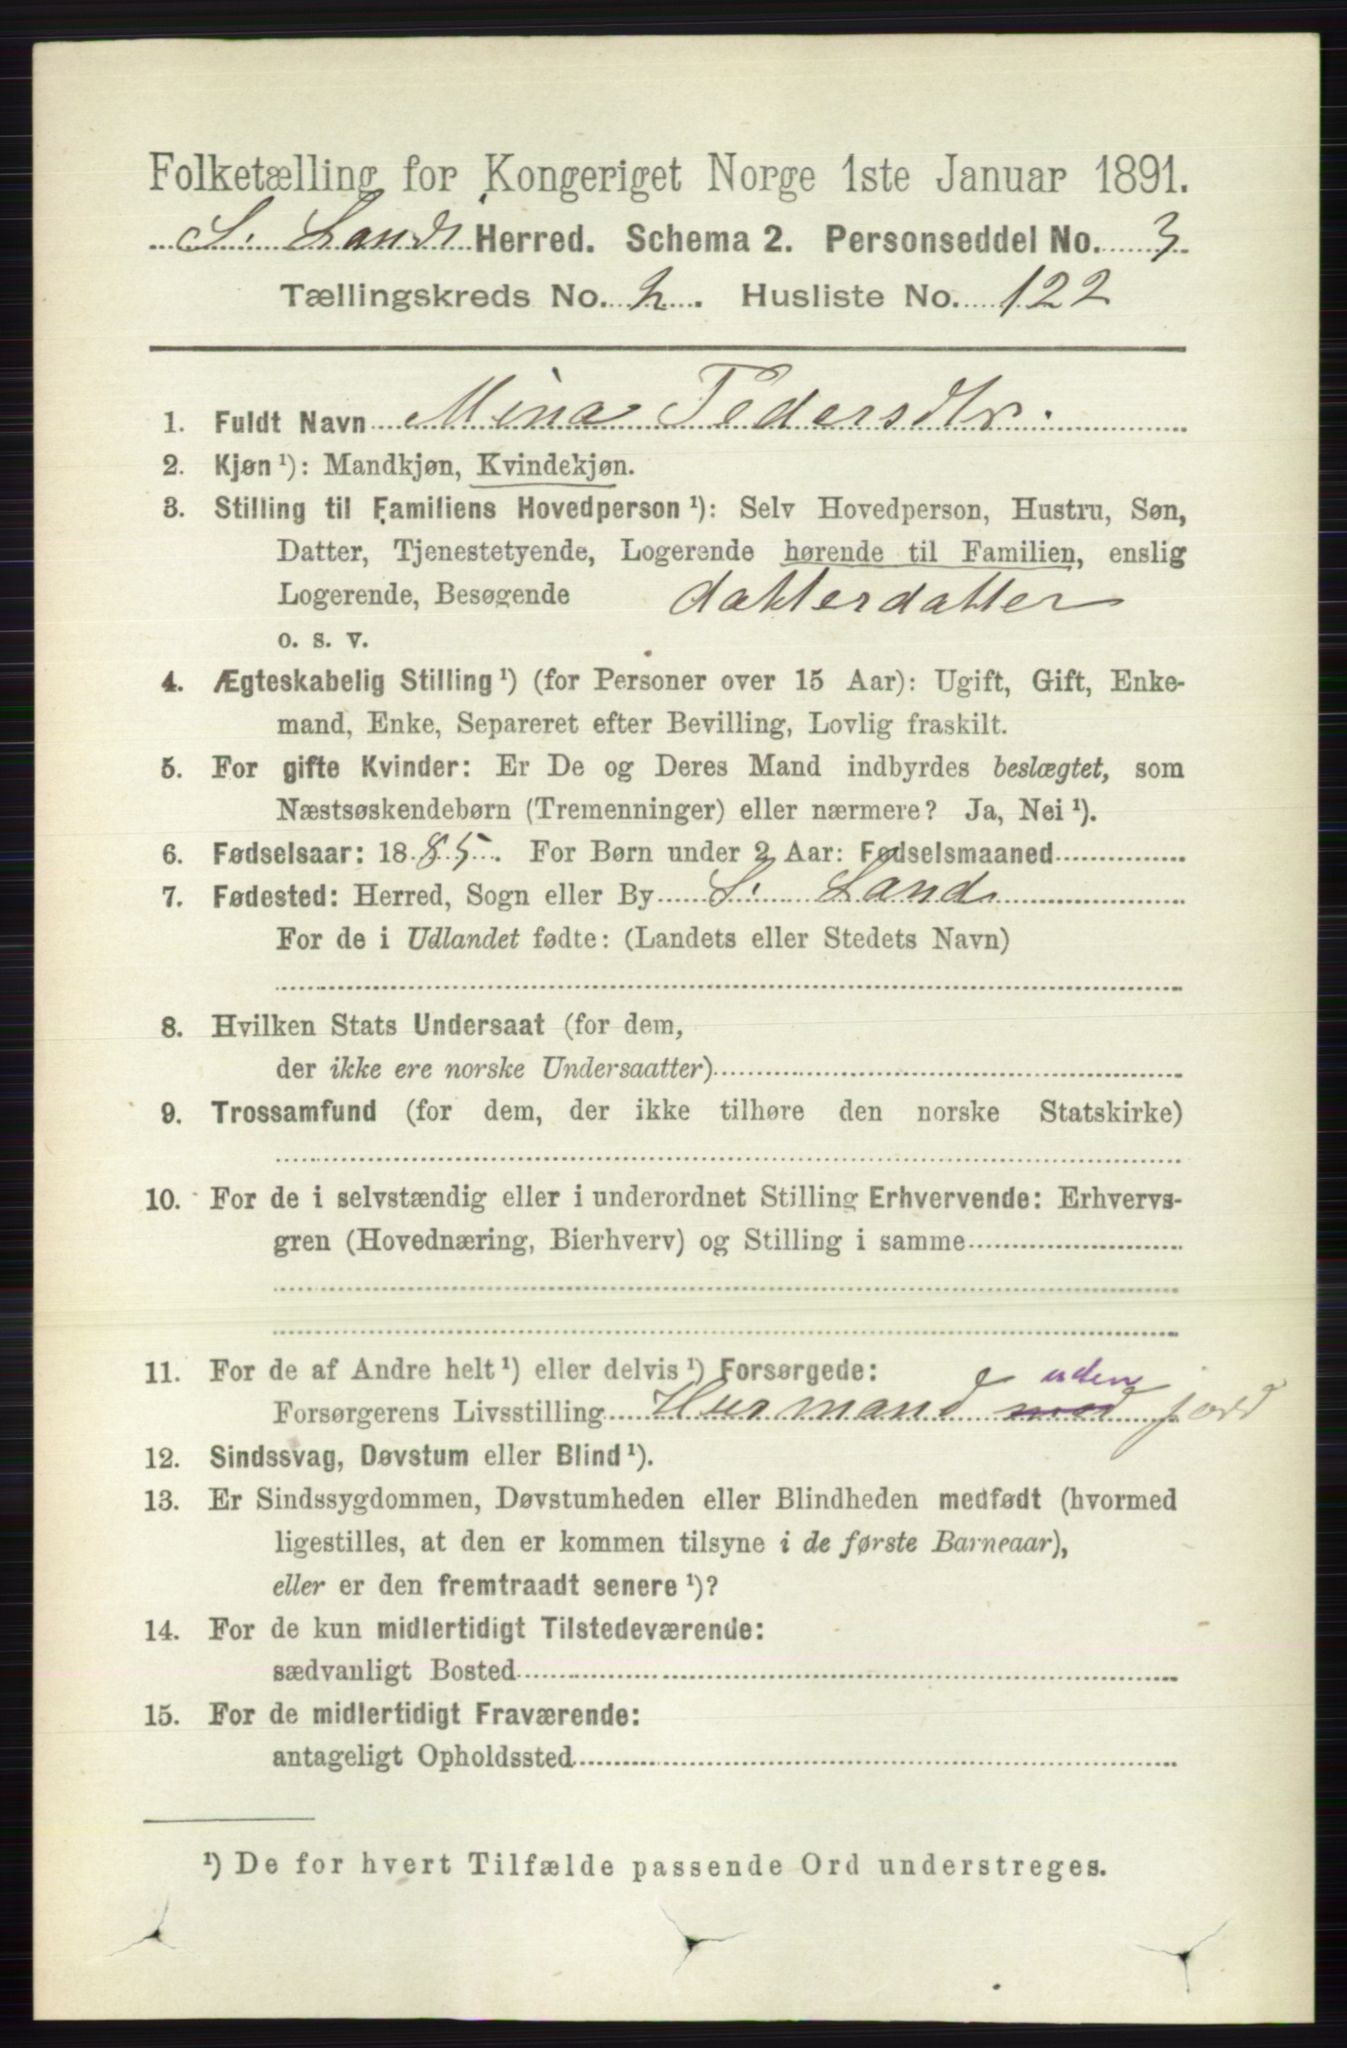 Folketælling for Kongeriget Norge 1ste Januar 1891.
S. Land Herred. Schema 2. Personseddel No. 3
Tællingskreds No. 2. Husliste No. 122
1. Fuldt Navn Mina Pedersdtr.
2. Kjøn ¹): Mandkjøn, Kvindekjøn.
3. Stilling til Familiens Hovedperson ¹): Selv Hovedperson, Hustru, Søn,
Datter, Tjenestetyende, Logerende hørende til Familien, enslig
Logerende, Besøgende datterdatter
o. s. v.
4. Ægteskabelig Stilling ¹) (for Personer over 15 Aar): Ugift, Gift, Enke-
mand, Enke, Separeret efter Bevilling, Lovlig fraskilt.
5. For gifte Kvinder: Er De og Deres Mand indbyrdes beslægtet, som
Næstsøskendebørn (Tremenninger) eller nærmere? Ja, Nei ¹).
6. Fødselsaar: 1885. For Børn under 2 Aar: Fødselsmaaned
7. Fødested: Herred, Sogn eller By S. Land
For de i Udlandet fødte: (Landets eller Stedets Navn)
8. Hvilken Stats Undersaat (for dem,
der ikke ere norske Undersaatter)
9. Trossamfund (for dem, der ikke tilhøre den norske Statskirke)
10. For de i selvstændig eller i underordnet Stilling Erhvervende: Erhvervs-
gren (Hovednæring, Bierhverv) og Stilling i samme
11. For de af Andre helt ¹) eller delvis ¹) Forsørgede:
uden
Forsørgerens Livsstilling Husmand med jord
12. Sindssvag, Døvstum eller Blind ¹).
13. Er Sindssygdommen, Døvstumheden eller Blindheden medfødt (hvormed
ligestilles, at den er kommen tilsyne i de første Barneaar),
eller er den fremtraadt senere ¹)?
14. For de kun midlertidigt Tilstedeværende:
sædvanligt Bosted
15. For de midlertidigt Fraværende:
antageligt Opholdssted
¹) De for hvert Tilfælde passende Ord understreges.